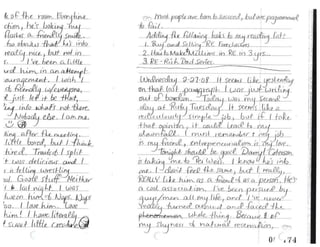 k of the room. Everytime
tion, he's baking my
flashes a friendly smile.
too obvious that he's into
really nice, but not in
r. I've been a little
ard him in an attempt
ouragement. I wish I
st friendly w/ everyone,
d just let it be that,
ing into what's not there.
Nobody else. I am me.
ing after the meeting.
little bored, but I think
hired. Truitt & I split
t was delicious and I
n a telling wrestling
ed. Good stuff. Neither
t last night. I was
ween them & Nyps. Nyps
so. I love him. Love
him! I have literally
t sweet little creature
Most people are born to succeed, but are programmed
to fail.
Adding the following books to my reading list:
1. Buy and Selling RE Fundamentals
2. How to Make Millions in RE in 3 yrs.
3. RE - Rich Dad Series
Wednesday 2-27-08 It seems like yesterday
on that last paragraph I was just writing
out of boredom. Today was my second
day at Ruby Tuesday. It seems like a
ridiculously simple job, but if I take
that position, it could lead to my
downfall. I must remember I only job
is my friend, entrepreneurialism is my love.
Tonight should be good. Darryl Coleman
is taking me to Tex Wasabi. I know he's into
me. I don't feel the same, but I really,
REALLY like him as a friend & as a person. He's
a cool association. I've been pursued by
guys/men all my life, and I've never
really, turned around and faced the
phenomenon whole thing. Because of
my shyness & natural reservation,
74